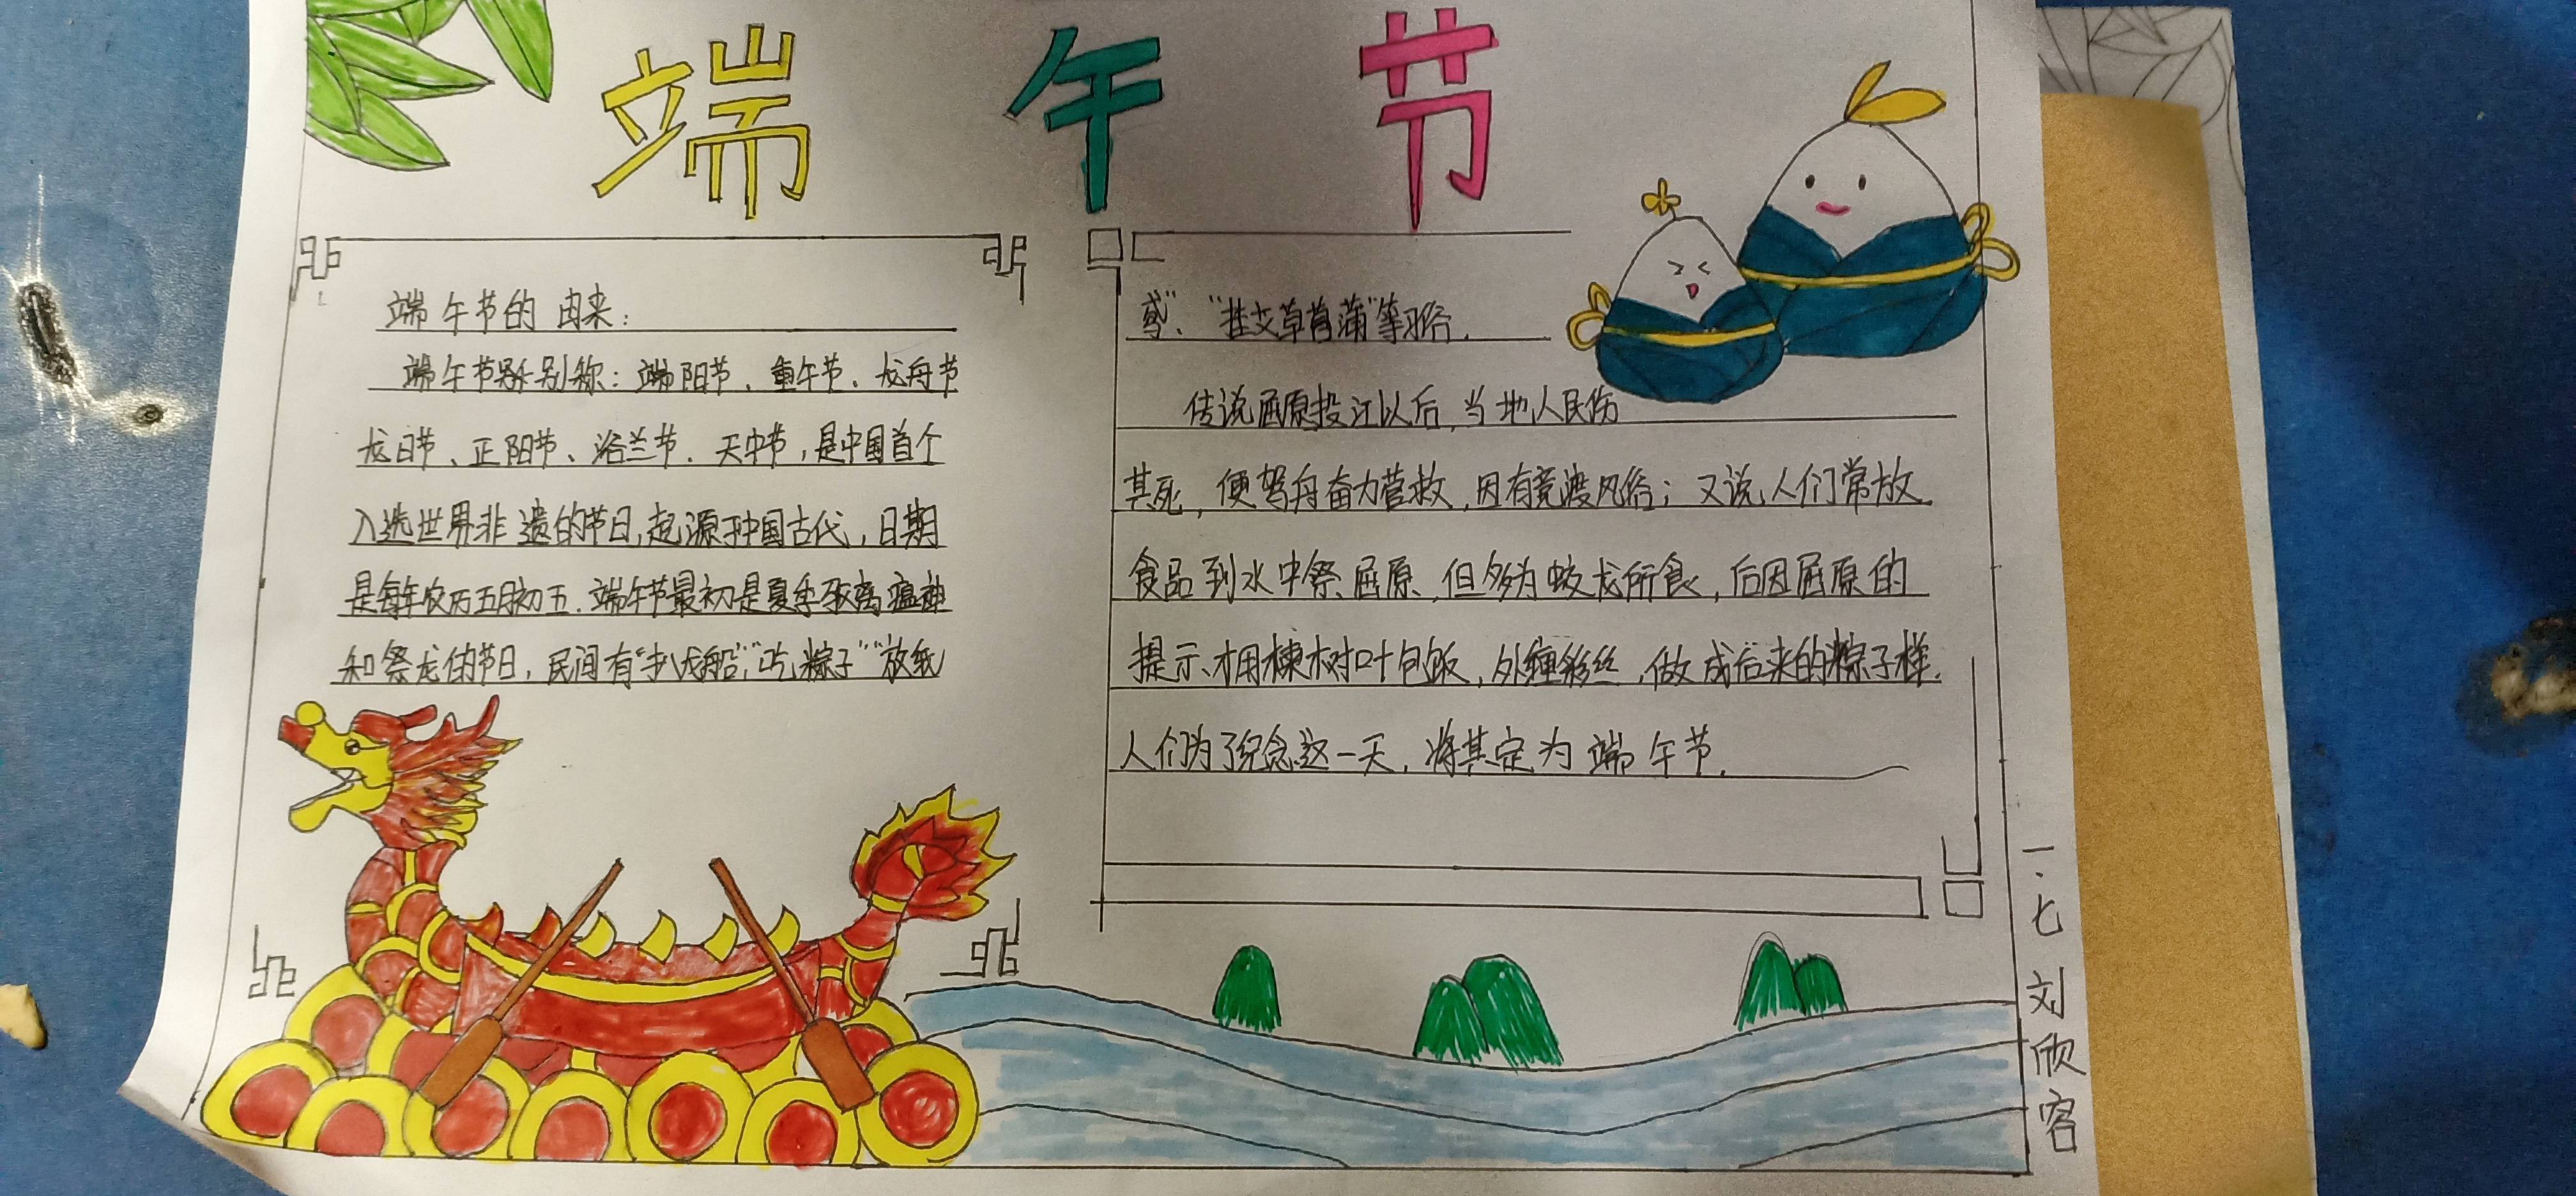 端午节
端午节的由来：
端午节别称：端阳节、重午节、龙舟节
龙日节、正阳节、浴兰节、天中节，是中国首个
入选世界非遗的节日，起源于中国古代，日期
是每年农历五月初五.端午节最初是夏季驱离瘟神
和祭龙的节日，民间有“扒龙船”，“吃粽子”“放纸
鸢”、“挂艾草菖蒲”等习俗.
传说屈原投江以后，当地人民伤
其死，便驾舟奋力营救，因有竞渡风俗；又说人们常放
食品到水中祭屈原，但多为蛟龙所食，后因屈原的
提示才用楝树叶包饭，外缠彩丝，做成后来的粽子样.
人们为了纪念这一天，将其定为端午节.
一.七 刘欣容